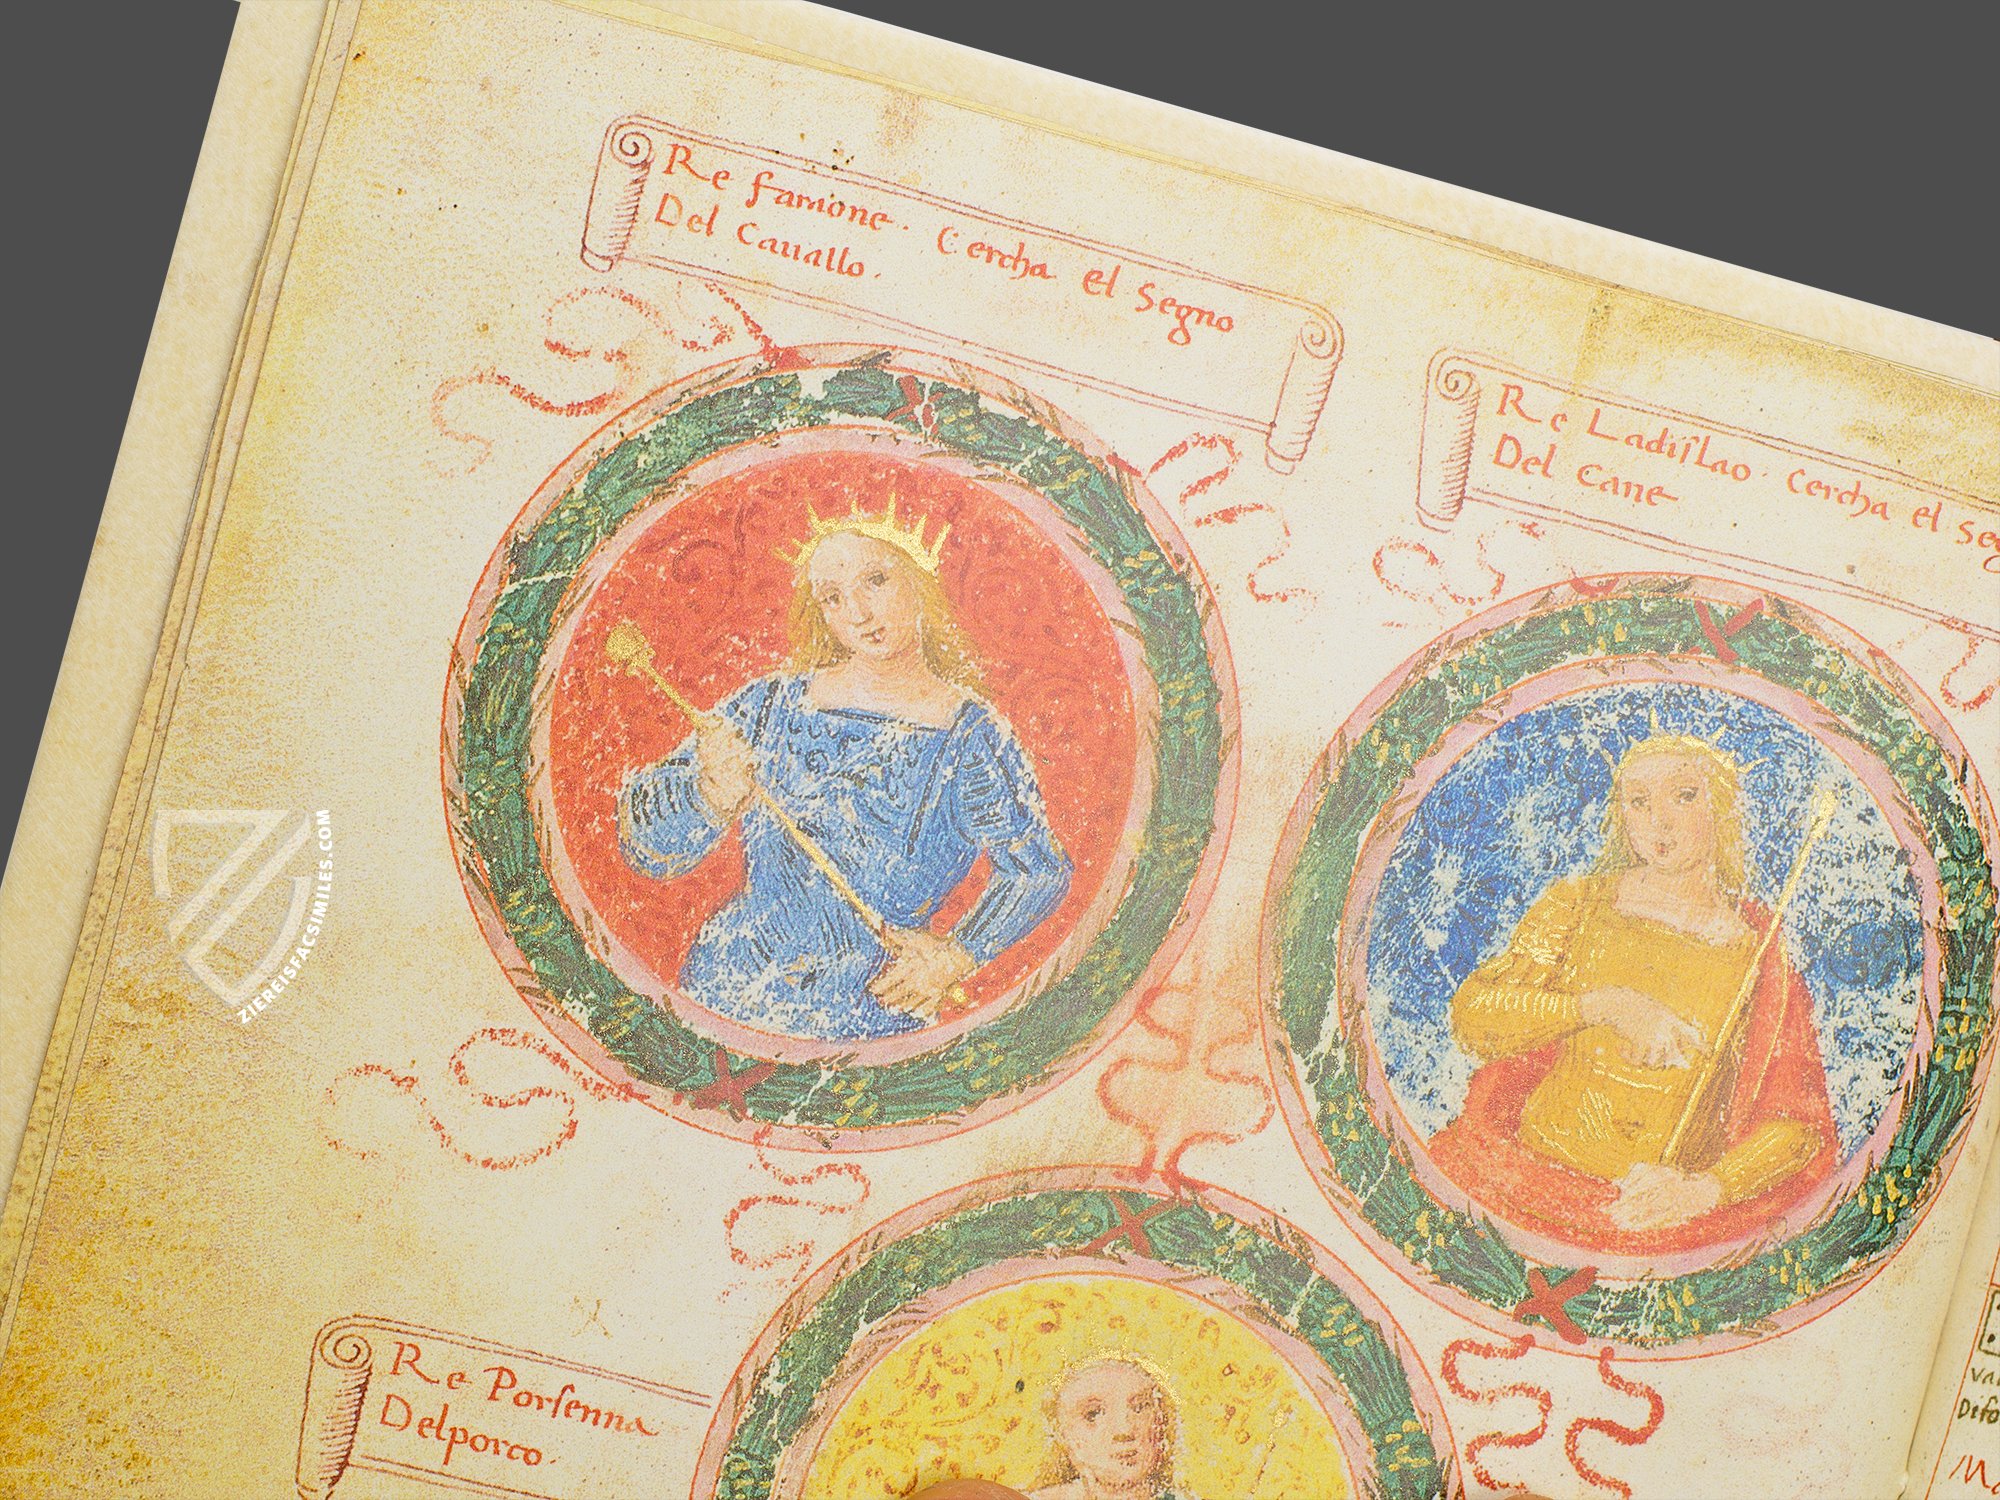 Re famone. Cercha el Segno
Del Cauallo.
Re Ladiſlao. Cercha el Seg
Del Cane
Re Porſenna
Delporco.
ZIEREISFACSIMILES.COM
Difo